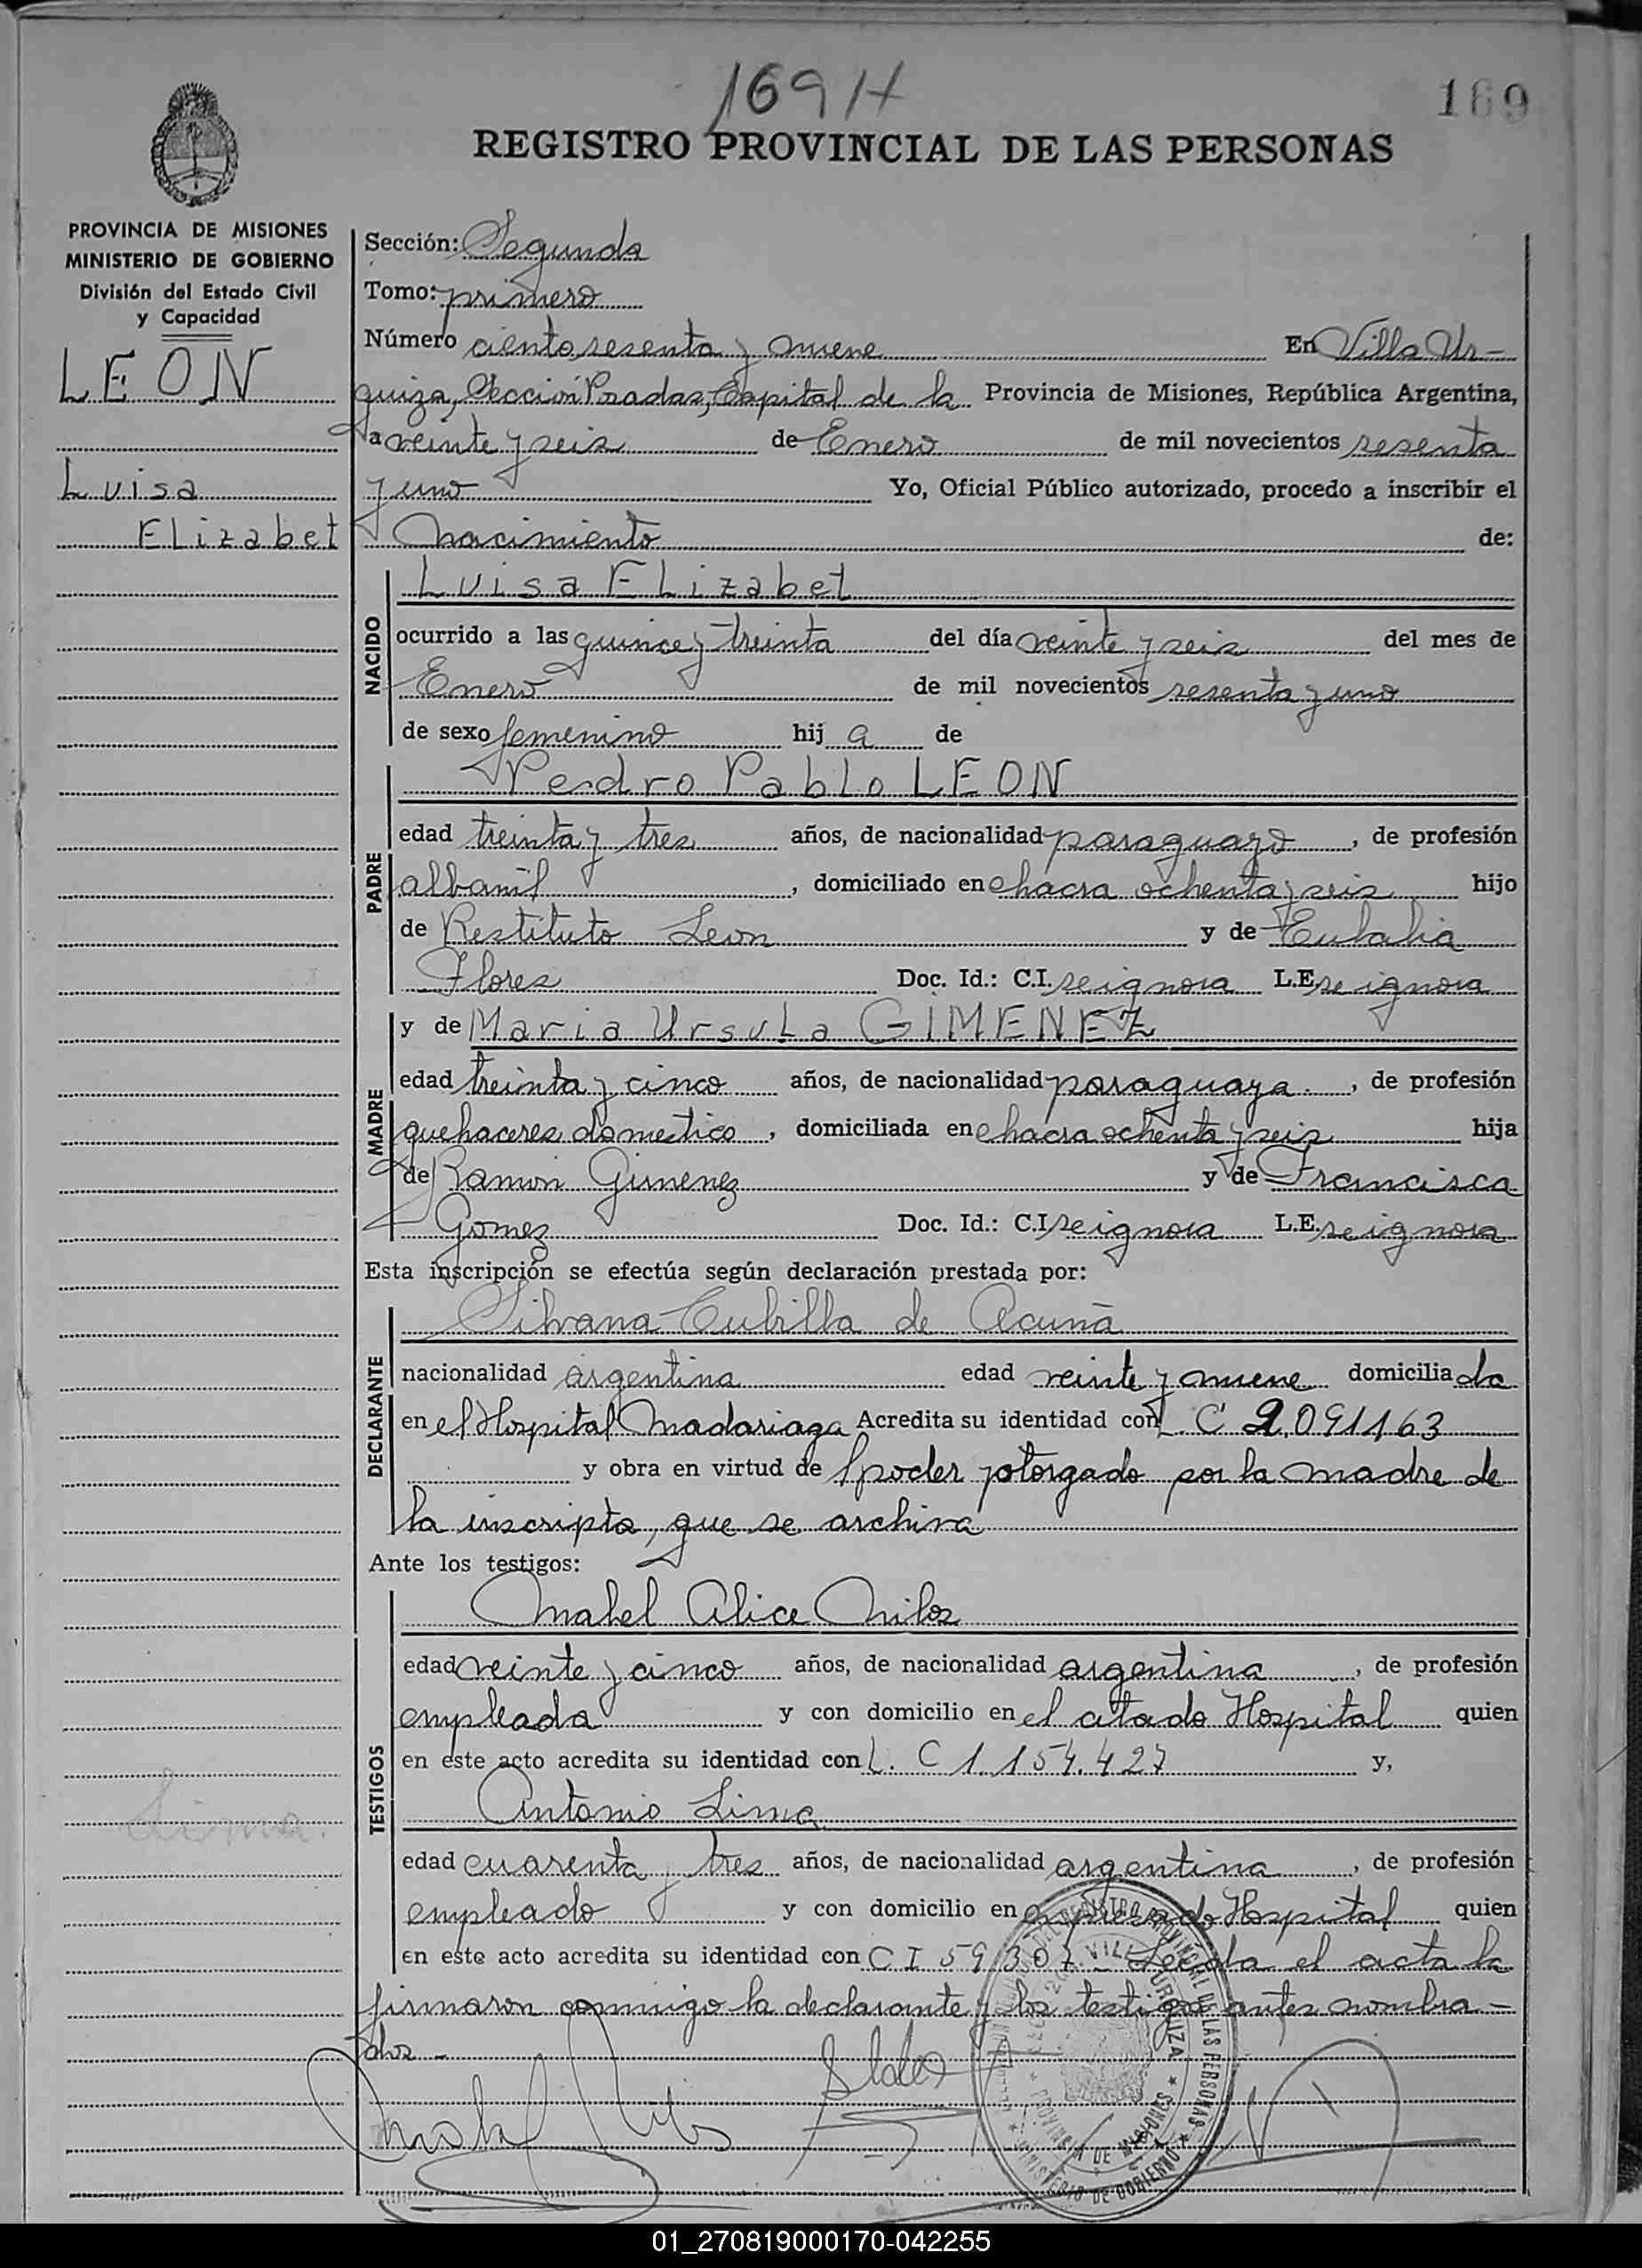 169 H
169
REGISTRO PROVINCIAL DE LAS PERSONAS
PROVINCIA DE MISIONES
MINISTERIO DE GOBIERNO
División del Estado Civil
y Capacidad
LEON
Luisa
Elizabet
Sección: Segunda
Tomo: primero
Número ciento sesenta y nueve En Villa Ur-
quiza, Sección Pradas, Capital de la Provincia de Misiones, República Argentina,
a veinte y seis de Enero de mil novecientos sesenta
y uno Yo, Oficial Público autorizado, procedo a inscribir el
Nacimiento de:
NACIDO
Luisa Elizabet
ocurrido a las quince y treinta del día veinte y seis del mes de
Enero de mil novecientos sesenta y uno
de sexo femenino hij a de
PADRE
Perdro Pablo LEON
edad treinta y tres años, de nacionalidad paraguayo, de profesión
albanil, domiciliado en chacra ochenta y seis hijo
de Restituto Leon y de Eulalia
Flores Doc. Id.: C.I. se ignora L.E. se ignora
MADRE
y de Maria Ursula GIMENEZ
edad treinta y cinco años, de nacionalidad paraguaya, de profesión
quehaceres domestico, domiciliada en chacra ochenta y seis hija
de Ramon Gimenez y de Francisca
Gomez Doc. Id.: C.I. se ignora L.E. se ignora
Esta inscripción se efectúa según declaración prestada por:
DECLARANTE
Silvana Cubilla de Acuña
nacionalidad argentina edad veinte y nueve domicilia da
en el Hospital Madariaga Acredita su identidad con L. C 2.091163
y obra en virtud de poder otorgado por la madre de
la inscripta, que se archiva
Ante los testigos:
TESTIGOS
Mabel Alice
edad veinte y cinco años, de nacionalidad argentina, de profesión
empleada y con domicilio en el citado Hospital quien
en este acto acredita su identidad con L. C 1.154.427 y,
Antonio Lima
edad cuarenta y tres años, de nacionalidad argentina, de profesión
empleado y con domicilio en Hospital quien
en este acto acredita su identidad con C I 59307 - Leida el acta la
firmaron conmigo la declarante y los testigos antes nombra-
dos -
REGISTRO PROVINCIAL DE LAS PERSONAS
VILLA URQUIZA
PROVINCIA DE MISIONES
MINISTERIO DE GOBIERNO
01_270819000170-042255